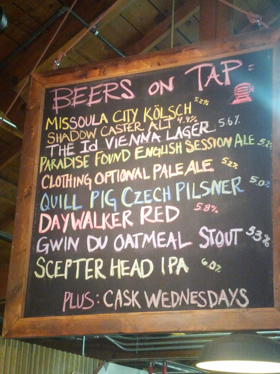 BEERS ON TAP
MISSOULA CITY KÖLSCH 5.2%
SHADOW CASTER ALT 4.9%
THE Id VIENNA LAGER 5.6%
PARADISE FOUND ENGLISH SESSION ALE 5.2%
CLOTHING OPTIONAL PALE ALE 5.2%
QUILL PIG CZECH PILSNER 5.0%
DAYWALKER RED 5.8%
GWIN DU OATMEAL STOUT 5.3%
SCEPTER HEAD IPA 6.0%
PLUS: CASK WEDNESDAYS